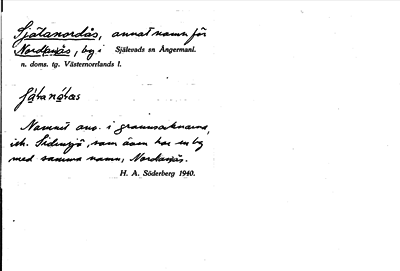 Själanordås, annat namn för
Nordanås, by i Själevads sn Ångermanl.
n. doms. tg. Västernorrlands l.
Namnet anv. i grannsocknarna,
isht. Sidensjö, som även har en by
med samma namn, Nordanås.
H. A. Söderberg 1940.